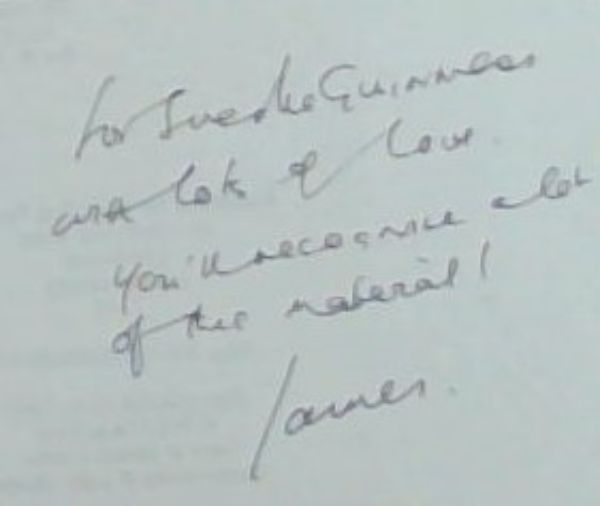 for Sueske Guinness
with lots of love.
You'll recognise a lot
of this material!
James.